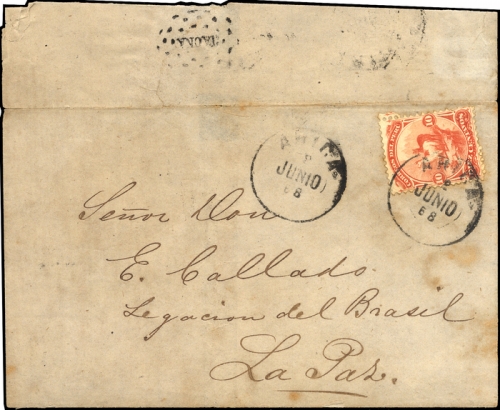 TACNA
ARICA
JUNIO
68
ARICA
JUNIO
68
Señor Don
E. Callado.
Legacion del Brasil
La Paz.